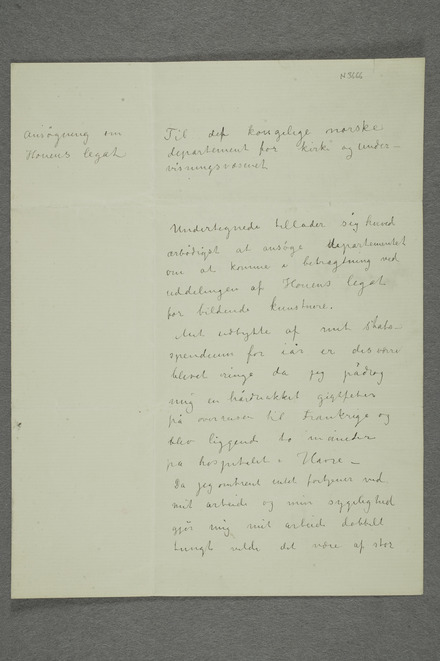 N 3666
Ansögning om
Houens legat
Til det kongelige norske
departement for kirke og under-
visningsvæsenet
Undertegnede tillader sig herved
ærbødigst at ansøge departementet
om at komme i betragtning ved
uddelingen af Houens legat
for bildende kunstnere.
Mit udbytte af mit Stats-
spendium for iår er desværre
blevet ringe da jeg pådrog
mig en hårdnakket gigtfeber
på overreisen til Frankrige og
blev liggende to måneder
på hospitalet i Havre –
Da jeg omtrent intet fortjener ved
mit arbeide og min sygelighed
gjør mig mit arbeide dobbelt
tungt vilde det være af stor